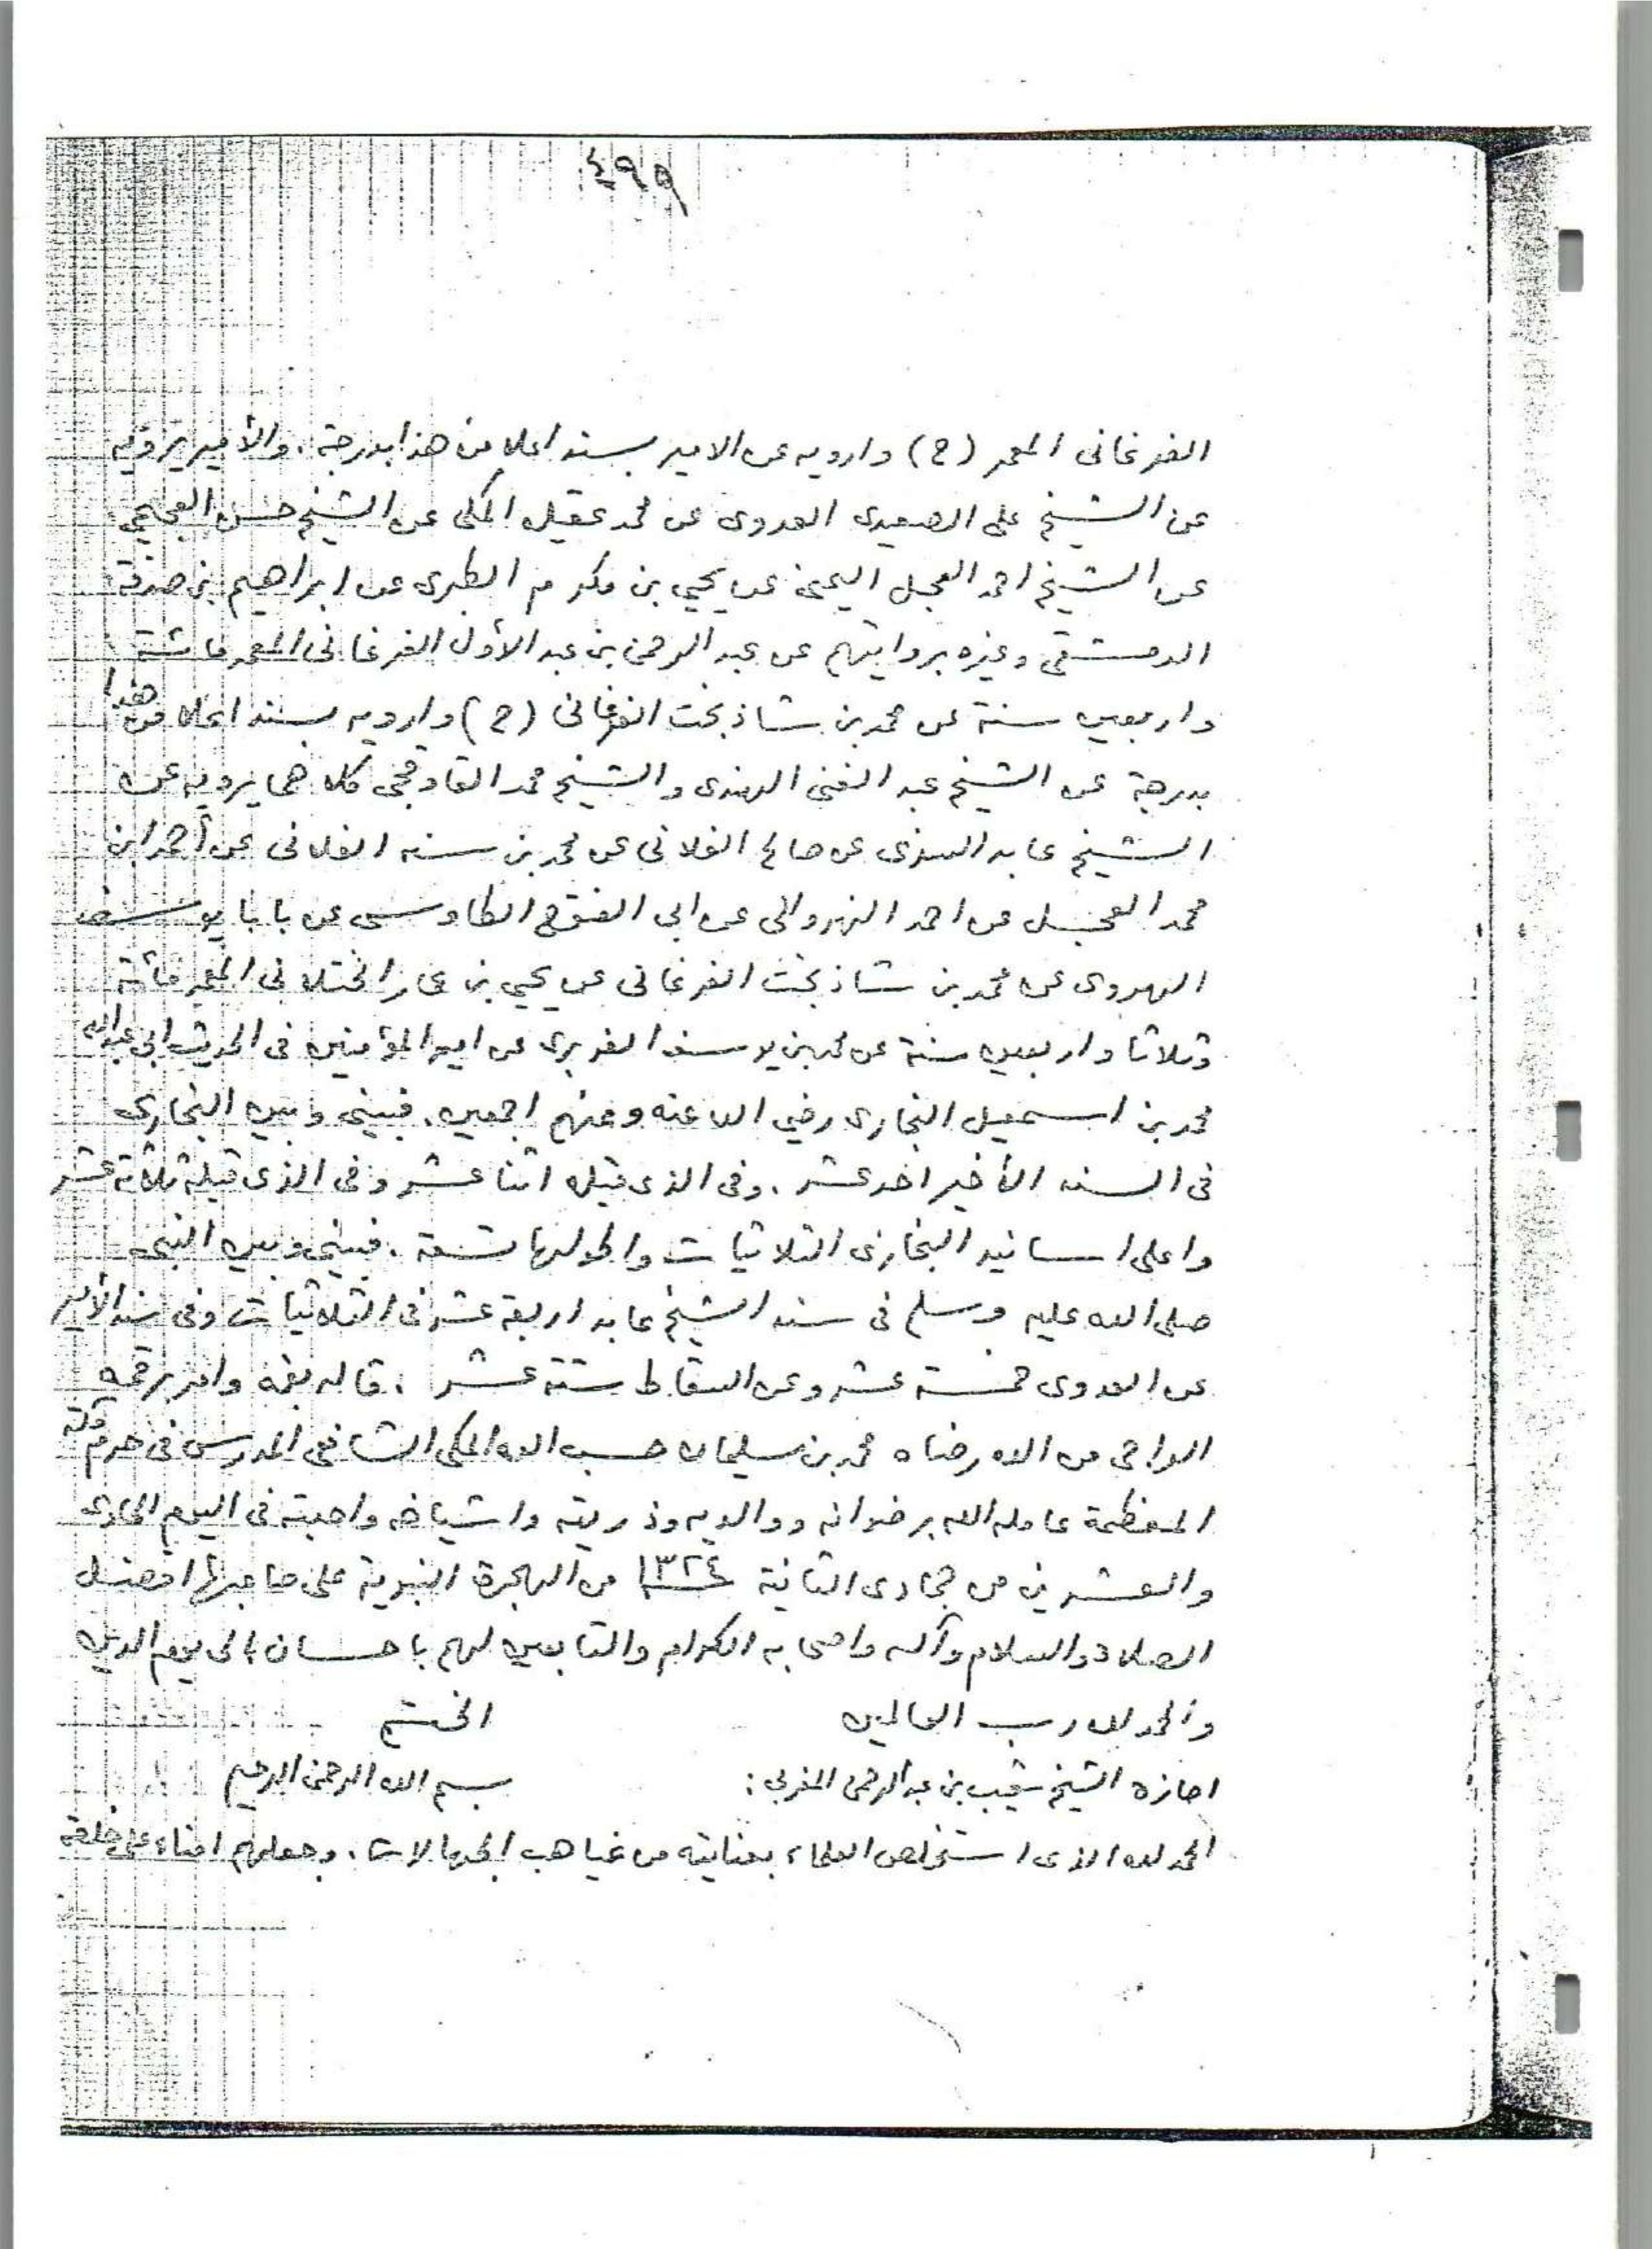 ٤٩٩
الفرغانى المعمر (ح) وارويه عن الامير بسند اعلا من هذا بدرجة . والأمير يرويه
عن الشيخ على الصعيدى العدوى عن محمد عقيله المكى عن الشيخ حسن العجيمى
عن الشيخ احمد العجل اليمنى عن يحيى بن مكرم الطبرى عن ابراهيم بن صدقة
الدمشقى وغيره بروايتهم عن عبد الرحمن بن عبد الأول الفرغانى المعمر مائة
واربعين سنة عن محمد بن شاذ بخت الفرغانى (ح) وارويه بسند اعلا من هذا
بدرجة عن الشيخ عبد الغنى الهندى والشيخ محمد القاوقجى كلاهما يرويه عن
الشيخ عابد السندى عن صالح الفلانى عن محمد بن سنه الفلانى عن أحمد ابن
محمد العجل عن احمد النهروالى عن ابى الفتوح الطاوسى عن بابا يوسف
الهروى عن محمد بن شاذ بخت الفرغانى عن يحيى بن عمار الختلانى المعمر مائة
وثلاثا واربعين سنة عن محمد بن يوسف الفربرى عن امير المؤمنين فى الحديث ابى عبد الله
محمد بن اسمعيل البخارى رضي الله عنه وعنهم اجمعين . فبينى وبين البخارى
فى السند الأخير احد عشر . وفى الذى قبله اثنا عشر وفى الذى قبله ثلاثة عشر
واعلى اسانيد البخارى الثلاثيات واطولها تسعة . فبينى وبين النبى
صلى الله عليه وسلم فى سند الشيخ عابد اربعة عشر فى الثلاثيات وفى سند الأمير
عن العدوى خمسة عشر وعن السقاط ستة عشر . قاله بفمه وامر برقمه
الراجى من الله رضاه محمد بن سليمان حسب الله المكى الشافعى المدرس فى حرم مكة
المعظمة عامله الله برضوانه ووالديه وذريته واشياخه واحبته فى اليوم الحادى
والعشرين من جمادى الثانية ١٣٢٤ من الهجرة النبوية على صاحبها افضل
الصلاة والسلام وآله واصحابه الكرام والتابعين لهم باحسان الى يوم الدين
والحمد لله رب العالمين الختم
اجازة الشيخ شعيب بن عبد الرحمن المغربى : بسم الله الرحمن الرحيم
الحمد لله الذى استخلص العلماء بعنايته من غياهب الجهالات . وجعلهم امناء على خلقه